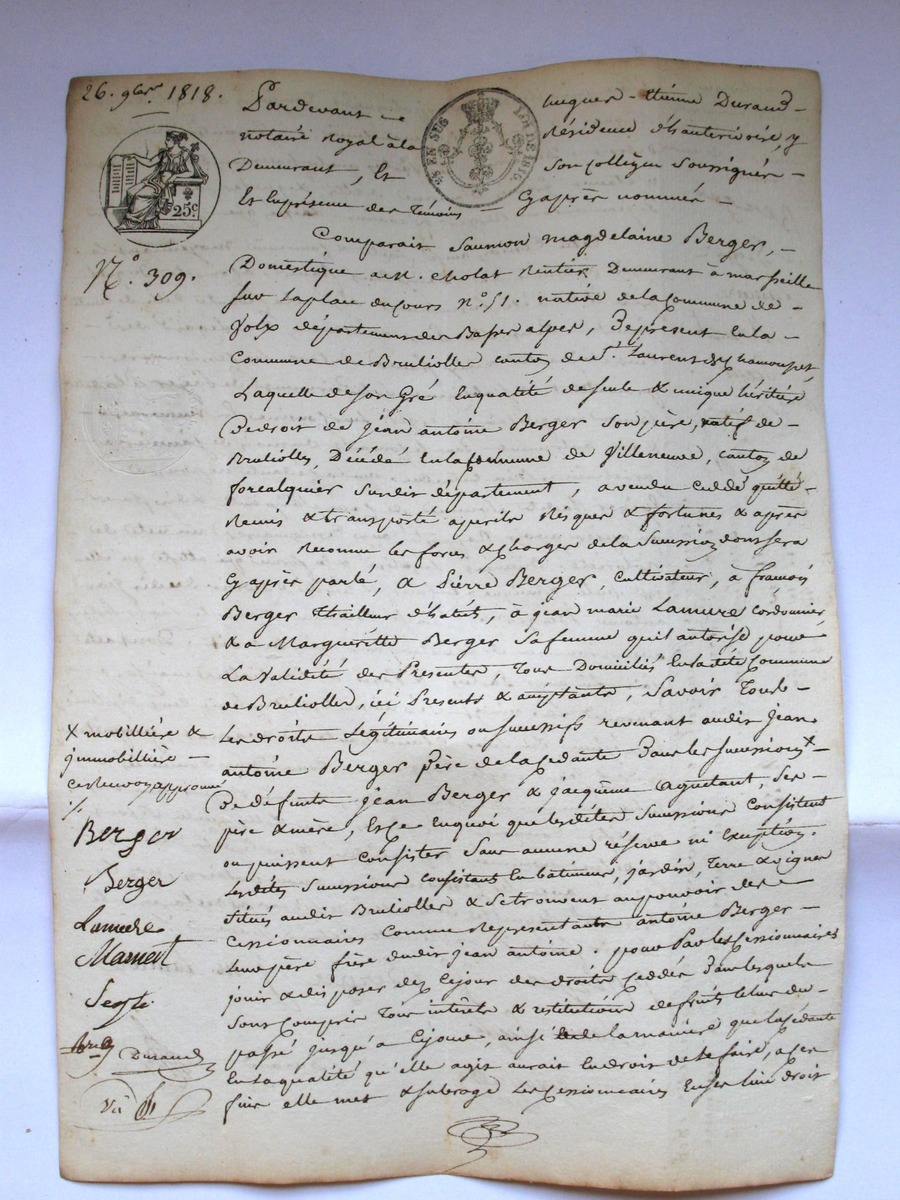 26. 9bre 1818.
Pardevant me hugues-étienne Durand
notaire Royal à la Résidence d'hauterivoire, y
Demeurant, Et Son collègue Soussignés
Et En présence des Témoins Cy après nommés
25c
Comparait magdelaine Berger,
N° 309.
Domestique de M. cholat Rentier Demeurant à marseille
sur la place du cours n° 51. native de la Commune de
Volx département des Basses alpes, De présent En la
Commune de Bruliolles canton de St. Laurent de chamousset,
Laquelle de son Gré En qualité de seule & unique héritière
De droit de jean antoine Berger Son père, natif de
Bruliolles, Décédé En la Commune de Villeneuve, canton de
forcalquier Susdit département, a vendu ceddé quitté
Remis & transporté à périls Risques & fortunes & après
avoir Reconnu les forces & charges de la Succession dont sera
Cy après parlé, à Pierre Berger cultivateur, à françois
Berger thailleur d'habits, à jean marie Lamure cordonnier
& a Margueritte Berger Sa femme qu'il autorise pour
La validité des Présentes, Tous Domiciliés En la dite Commune
de Bruliolles, ici Présents & acceptants, Savoir Tous
Les droits Légitimaires ou successifs revenant audit jean
antoine Berger père de la cedante Dans les successions x
De défunts jean Berger & jacqueme aguetant, ses
père & mère, En ce En quoi que les dites Successions Consistent
ou puissent Consister Sans aucune réserve ni Exception.
Lesdites Successions consistant En batiments, jardin, Terre & vignes
situés audit Bruliolles & se trouvent au pouvoir des
Cessionnaires Comme Représentants antoine Berger
leur père frère dudit jean antoine. pour Par les Cessionnaires
jouir & disposer dez Cejour des droits ceddés Dans lesquels
Sont Compris Tous intérêts & restitutions de fruits
passé jusqu'à Cejour, ainsi de la manière que la cedante
En la qualité qu'elle agit aurait En droit de le faire, à ces
fins elle met & subroge Les Cessionnaires droit
x mobillière &
jmmobillière
ce renvoy approuvé
Berger
Berger
Lamure
Mamert
Durand
Vu